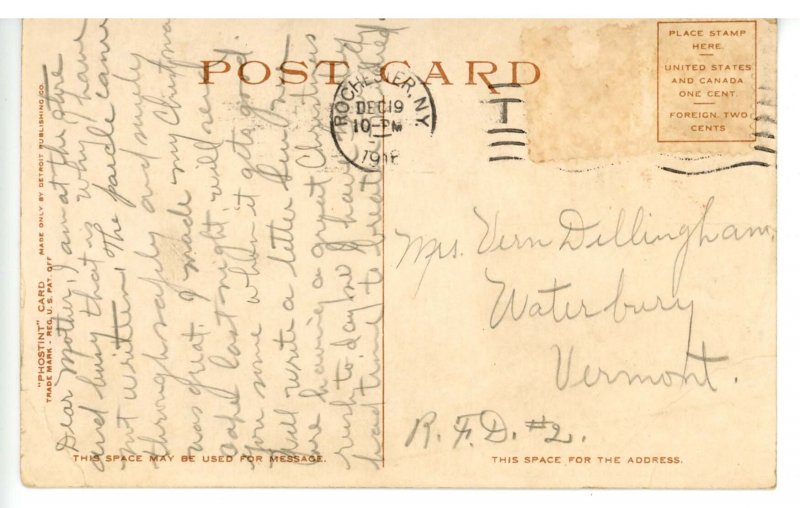 POST CARD
PLACE STAMP
HERE.
UNITED STATES
AND CANADA
ONE CENT.
FOREIGN TWO
CENTS
ROCHESTER, N.Y.
DEC 19
10-PM
"PHOSTINT" CARD MADE ONLY BY DETROIT PUBLISHING CO.
TRADE MARK - REG. U.S. PAT. OFF.
Dear Mother, I am at the store
and busy that is why I have
not written. The parcle came
through safely and surely
was great. I made my Christmas
cake last night, will send
you some when it gets good.
Will write a letter Sun.
are having a great Christmas
rush to day so I have
had time to breathe
Mrs. Vern Dillingham,
Waterbury
Vermont.
R.F.D. #2.
THIS SPACE MAY BE USED FOR MESSAGE.
THIS SPACE FOR THE ADDRESS.